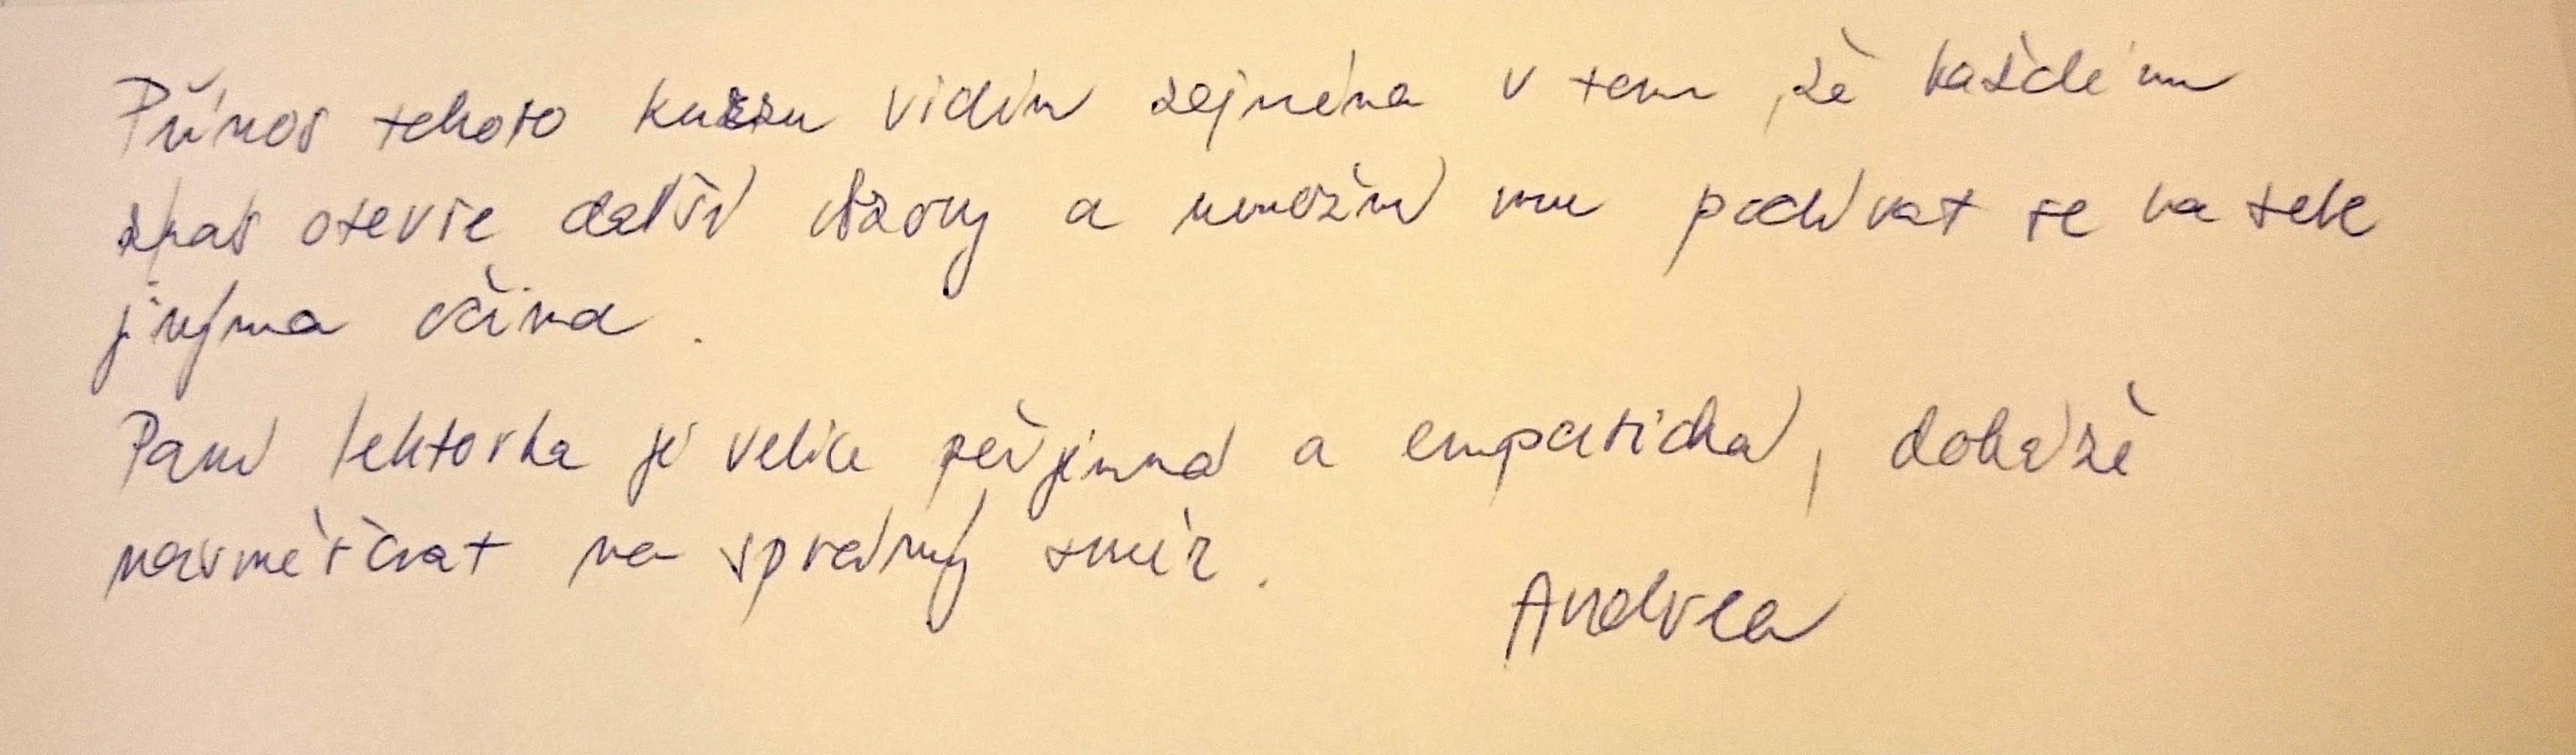 Přínos tohoto kurzu vidím zejména v tom, že každému
zpas otevře další obzory a umožní mu podívat se na sebe
jinýma očima.
Paní lektorka je velice příjemná a empatická, dokáže
nasměrovat na správný směr.
Andrea